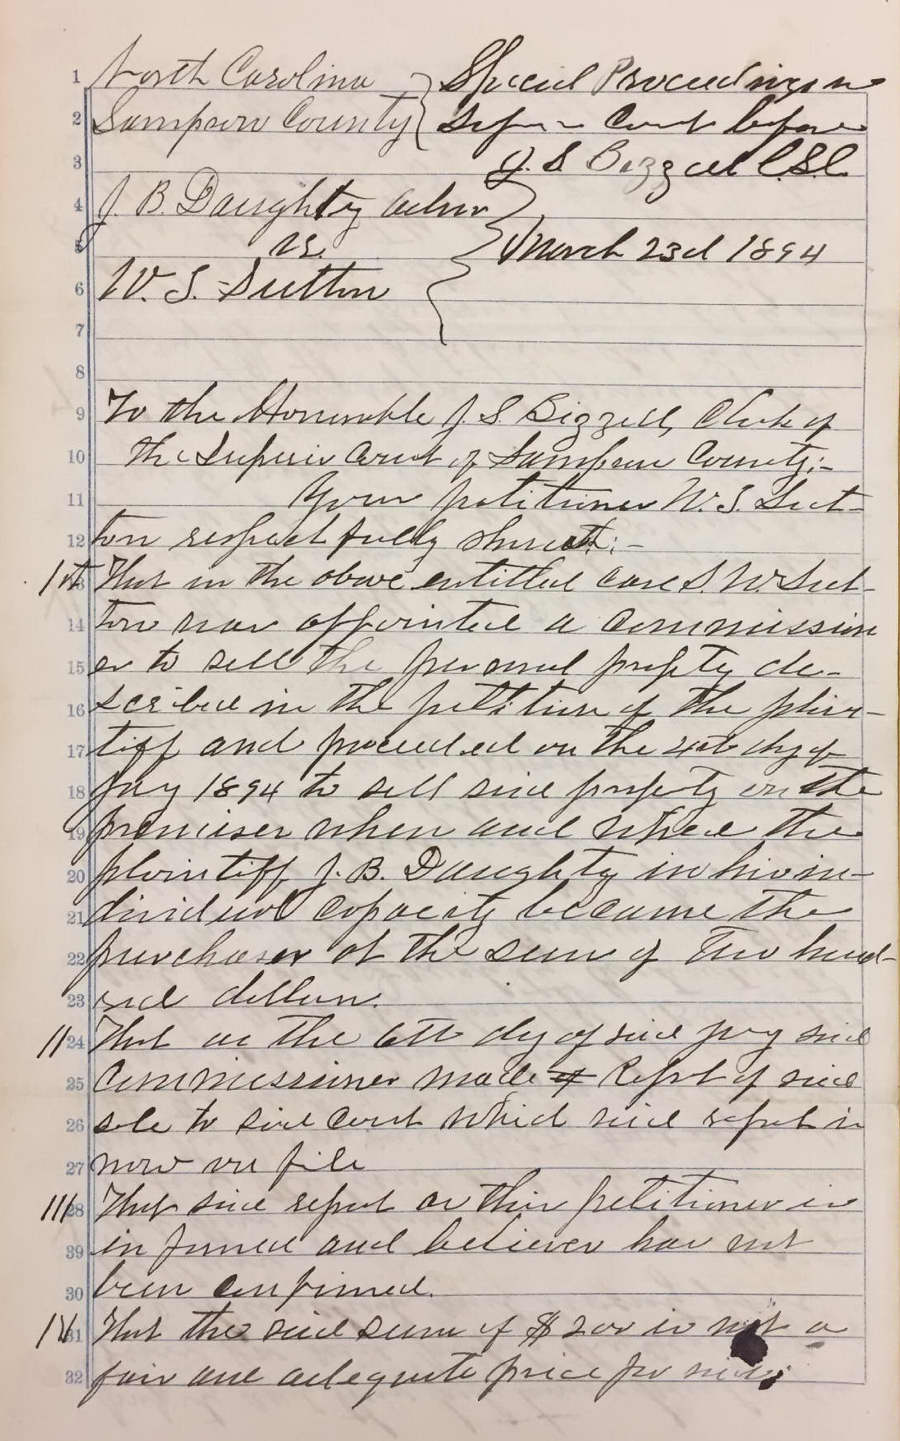 North Carolina } Special Proceedings in
Sampson County } Superior Court before
J. S. Bizzell C.S.C.
J. B. Daughty admr
vs. } March 23d 1894
W. S. Sutton
To the Honorable J. S. Bizzell, Clerk of
the Superior Court of Sampson County:-
Your petitioner W. S. Sut-
ton respectfully shows:-
1st That in the above entitled case S. W. Sut-
ton was appointed a commission
er to sell the personal property de-
scribed in the petition of the plain-
tiff and proceeded on the day of
Jany 1894 to sell said property on the
premises when and where the
plaintiff J. B. Daughty in his in-
dividual capacity became the
purchaser at the sum of Two hund-
red dollars.
II That on the 6th day of said Jany said
Commissioner made of Report of said
sale to said court which said report is
now on file
III That said report as this petitioner is
informed and believes has not
been confirmed.
IV That the said sum of $200 is not a
fair and adequate price for